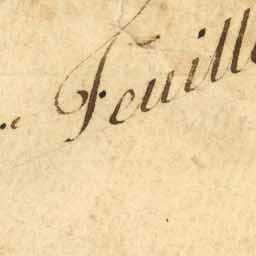 .. Feuill